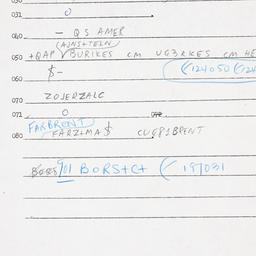 031 0
040 — QS AMER
(AJNS+TELN)
050 +QAP √BURIKES CM UG3RKES CM HE
$- (124050 (124
060
070 ZOJERZALC
071 0
FARBRENT
080 FARZLMA$ CUGPIBRENT
901 BORS+C+ ( 197031